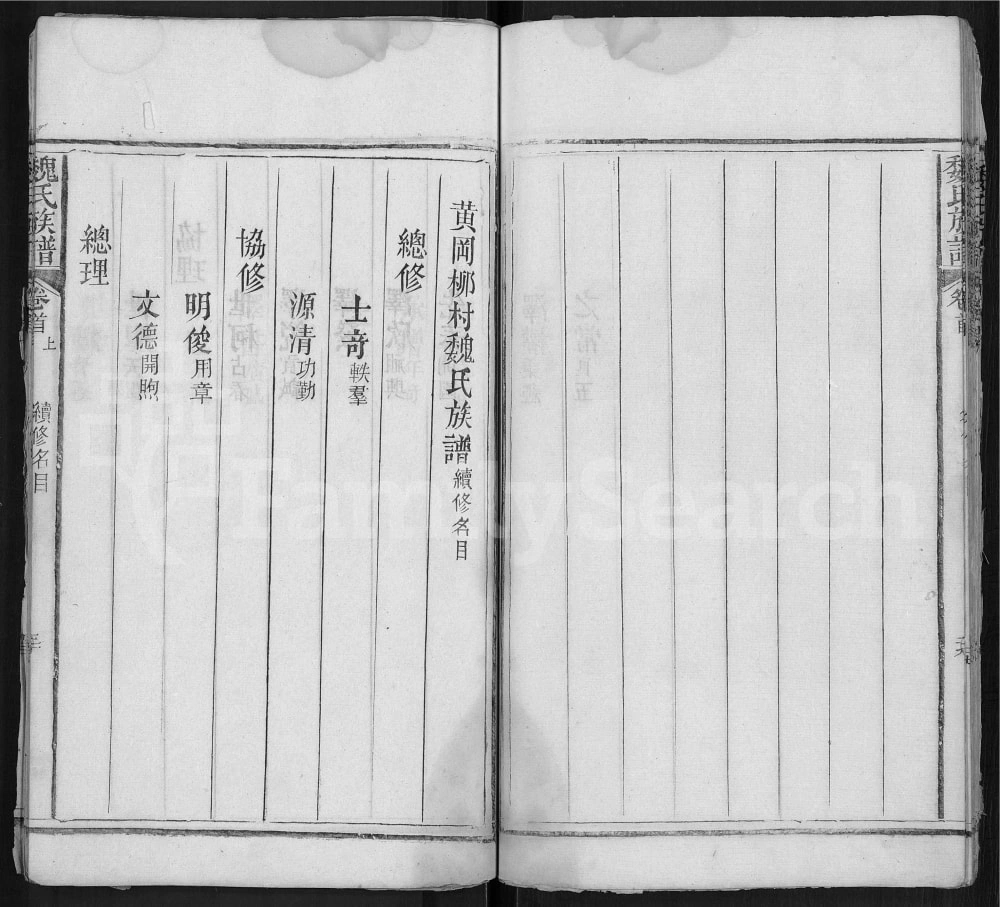 黄岡栁村魏氏族譜續修名目
總修
士竒軼羣
源清功勤
協修
明俊用章
文德開煦
總理
魏氏族譜 卷首上 續修名目
魏氏族譜 卷首
FamilySearch